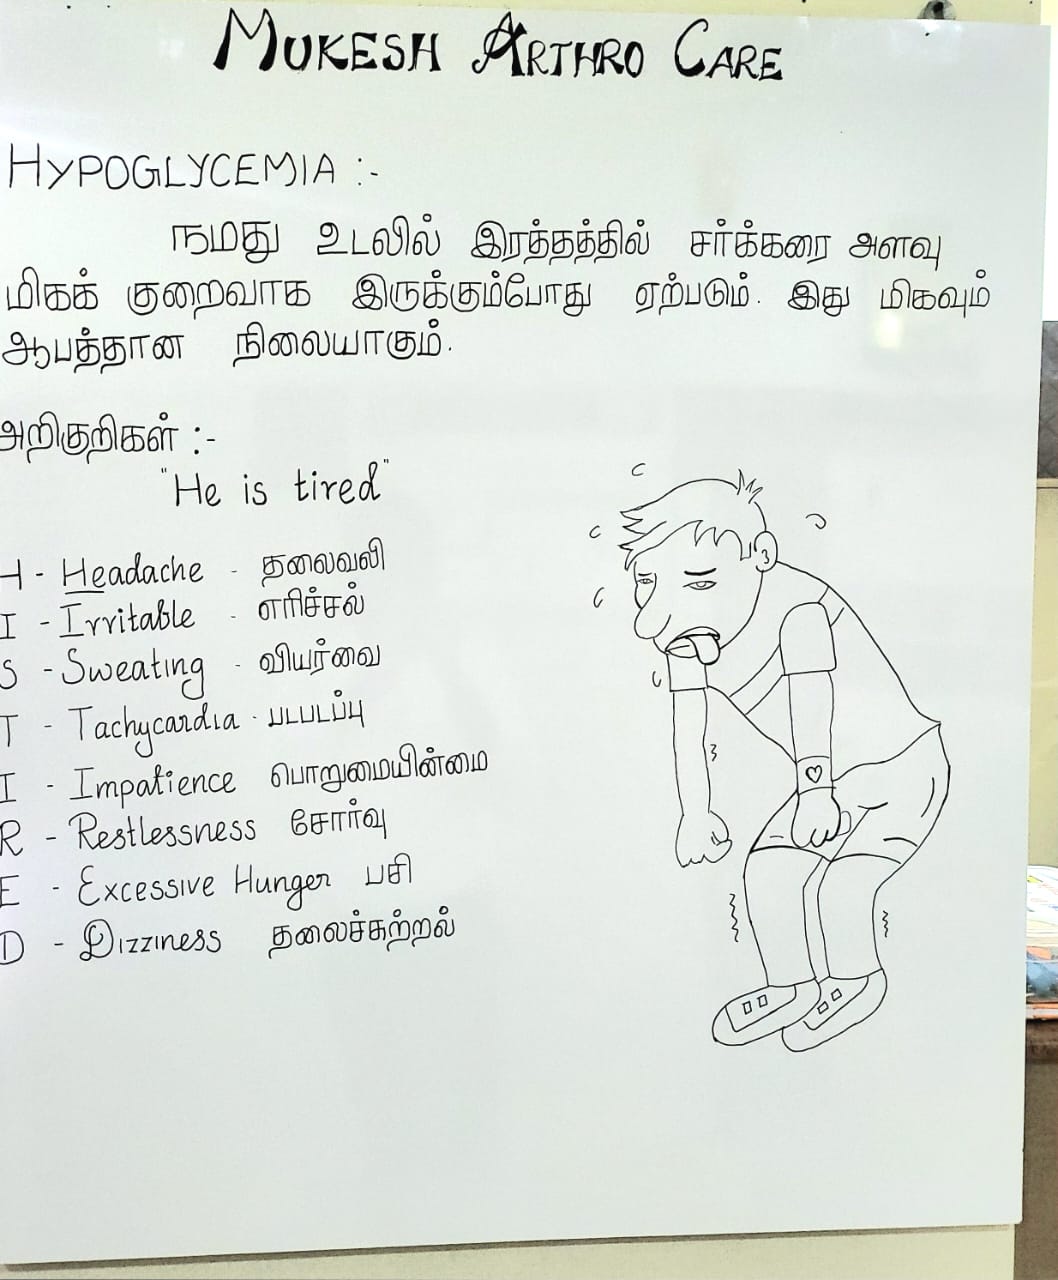 MUKESH ARTHRO CARE
HYPOGLYCEMIA :-
நமது உடலில் இரத்தத்தில் சர்க்கரை அளவு
மிகக் குறைவாக இருக்கும்போது ஏற்படும். இது மிகவும்
ஆபத்தான நிலையாகும்.
அறிகுறிகள் :-
"He is tired"
H - Headache - தலைவலி
I - Irritable - எரிச்சல்
S - Sweating - வியர்வை
T - Tachycardia - படபடப்பு
I - Impatience பொறுமையின்மை
R - Restlessness சோர்வு
E - Excessive Hunger பசி
D - Dizziness தலைச்சுற்றல்